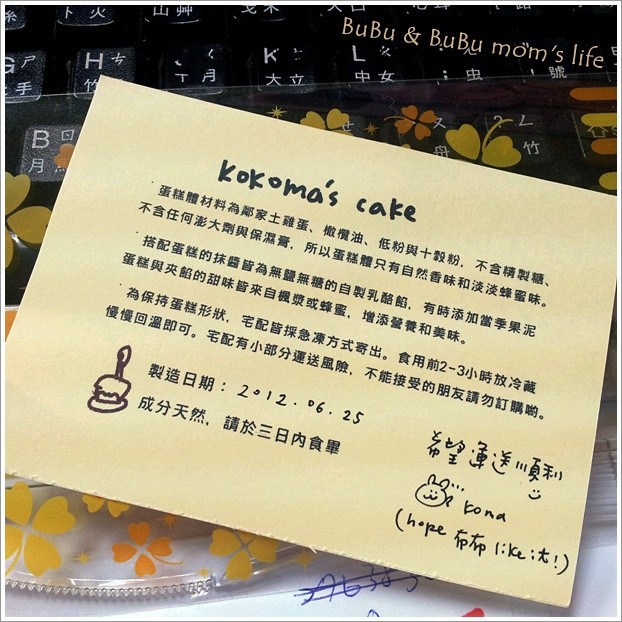 BuBu & BuBu mom's life
G
H
竹
J
K
大
L
中
女
虫
號
B
月
又
舟
竹
kokoma's cake
·蛋糕體材料為鄰家土雞蛋、橄欖油、低粉與十穀粉，不含精製糖、
不含任何澎大劑與保濕膏，所以蛋糕體只有自然香味和淡淡蜂蜜味。
·搭配蛋糕的抹醬皆為無鹽無糖的自製乳酪餡，有時添加當季果泥
蛋糕與夾餡的甜味皆來自楓漿或蜂蜜，增添營養和美味。
·為保持蛋糕形狀，宅配皆採急凍方式寄出。食用前2-3小時放冷藏
慢慢回溫即可。宅配有小部分運送風險，不能接受的朋友請勿訂購喲。
製造日期：2012.06.25
成分天然，請於三日內食畢
希望運送順利
koma
(hope 布布 like it!)